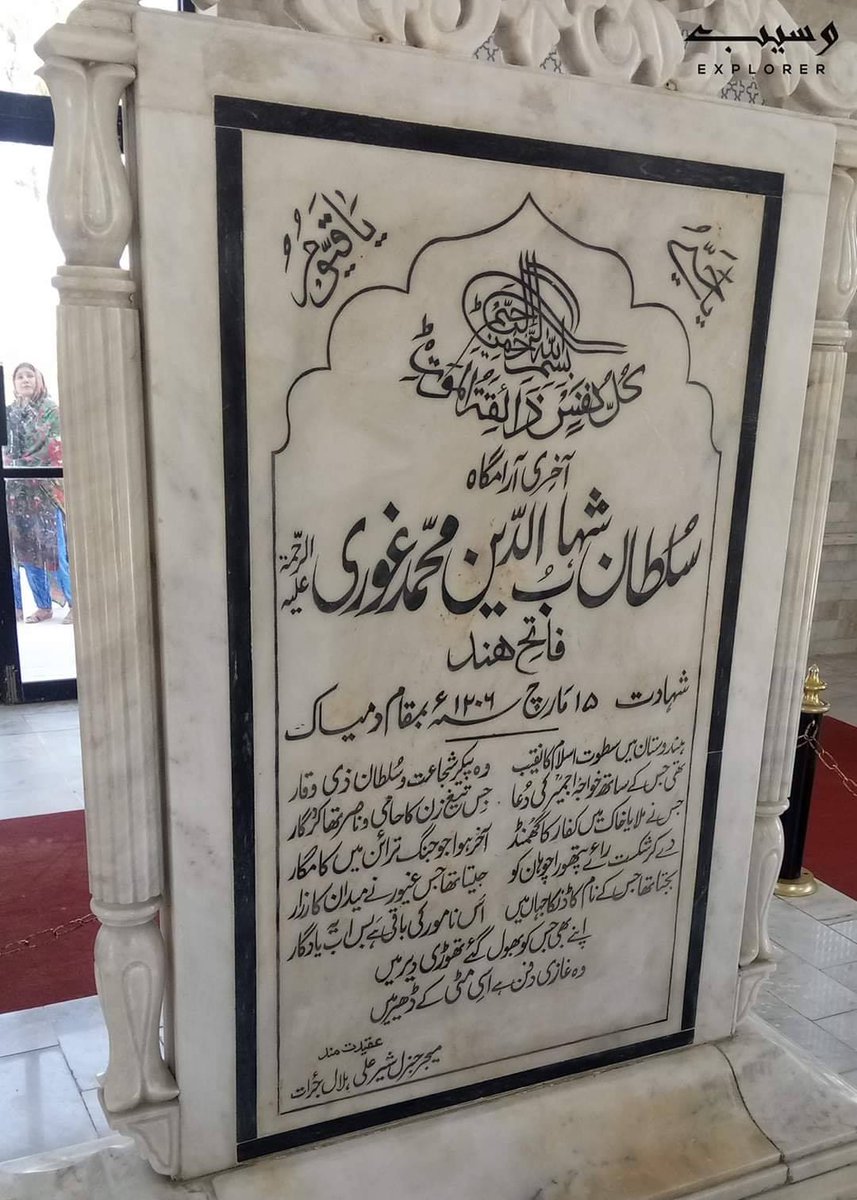 وسیب
EXPLORER
یَا حَیُّ
یَا قَیُّوْمُ
بسم اللہ الرحمٰن الرحیم
کُلُّ نَفْسٍ ذَائِقَةُ الْمَوْتِ
آخری آرامگاہ
سُلطان شہابُ الدّین محمّد غوری
علیہ الرحمۃ
فاتح ھند
شہادت ۱۵ مارچ سنہ ۱۲۰۶ء بمقام دمیاک
ہندوستان میں سطوت اسلام کا نقیب وہ پیکر شجاعت و سُلطان ذی وقار
تھی جس کے ساتھ خواجۂ اجمیر کی دُعا جس تیغ زن کا حامی و ناصر تھا کردگار
جس نے ملایا خاک میں کفار کا گھمنڈ آخر ہوا جو جنگ ترائن میں کامگار
دے کر شکست رائے پتھورا چوہان کو جیتا تھا جس غیور نے میدان کارزار
بجتا تھا جس کے نام کا ڈنکا جہاں میں اس نامور کی باقی ہے بس اب یہ یادگار
اپنے بھی جس کو بھول گئے تھوڑی دیر میں
وہ غازی دفن ہے اسی مٹی کے ڈھیر میں
عقیدت مند
میجر جنرل شیر علی ہلال جرأت